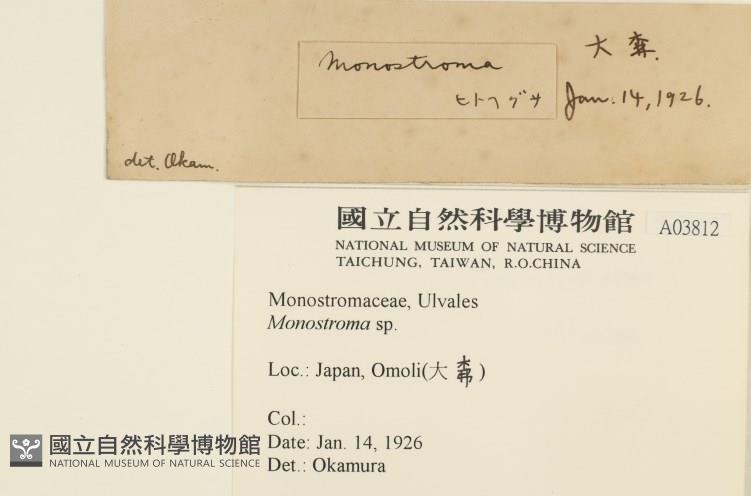 Monostroma
ヒトヘグサ
大森.
Jan. 14, 1926.
det. Okam.
國立自然科學博物館
NATIONAL MUSEUM OF NATURAL SCIENCE
TAICHUNG, TAIWAN, R.O.CHINA
A03812
Monostromaceae, Ulvales
Monostroma sp.
Loc.: Japan, Omoli(大 )
Col.:
Date: Jan. 14, 1926
Det.: Okamura
國立自然科學博物館
NATIONAL MUSEUM OF NATURAL SCIENCE